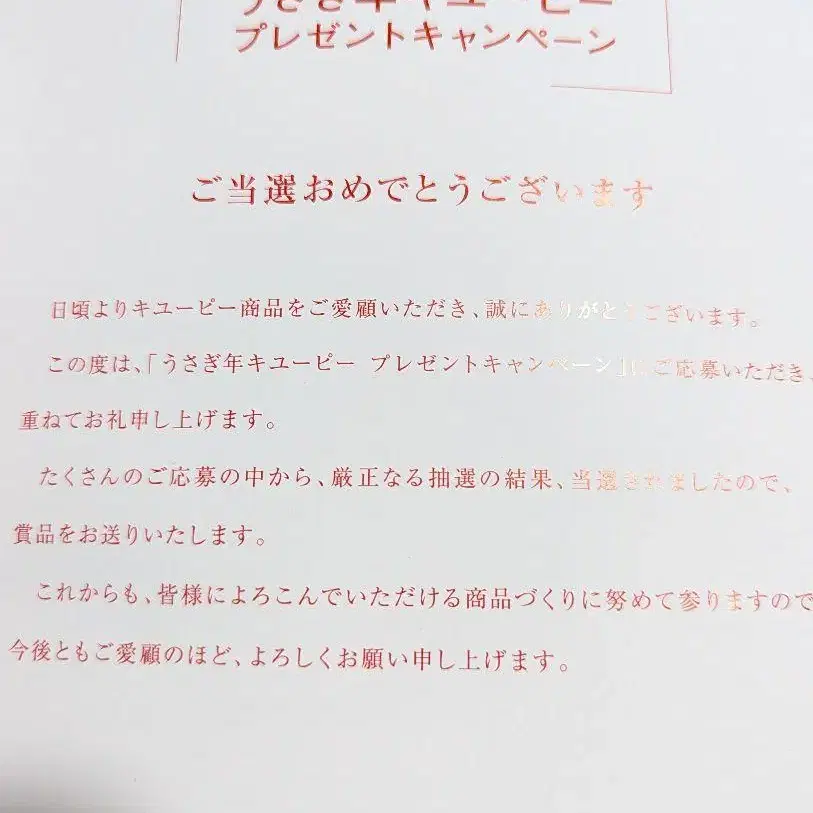 うさぎ年キユーピー
プレゼントキャンペーン
ご当選おめでとうございます
日頃よりキユーピー商品をご愛顧いただき、誠にありがとうございます。
この度は、「うさぎ年キユーピー プレゼントキャンペーン」にご応募いただき、
重ねてお礼申し上げます。
たくさんのご応募の中から、厳正なる抽選の結果、当選されましたので、
賞品をお送りいたします。
これからも、皆様によろこんでいただける商品づくりに努めて参りますので
今後ともご愛顧のほど、よろしくお願い申し上げます。